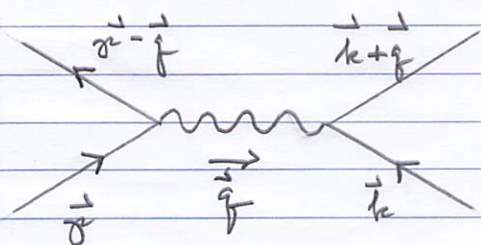 p⃗ - q⃗ k⃗ + q⃗
p⃗ q⃗ k⃗